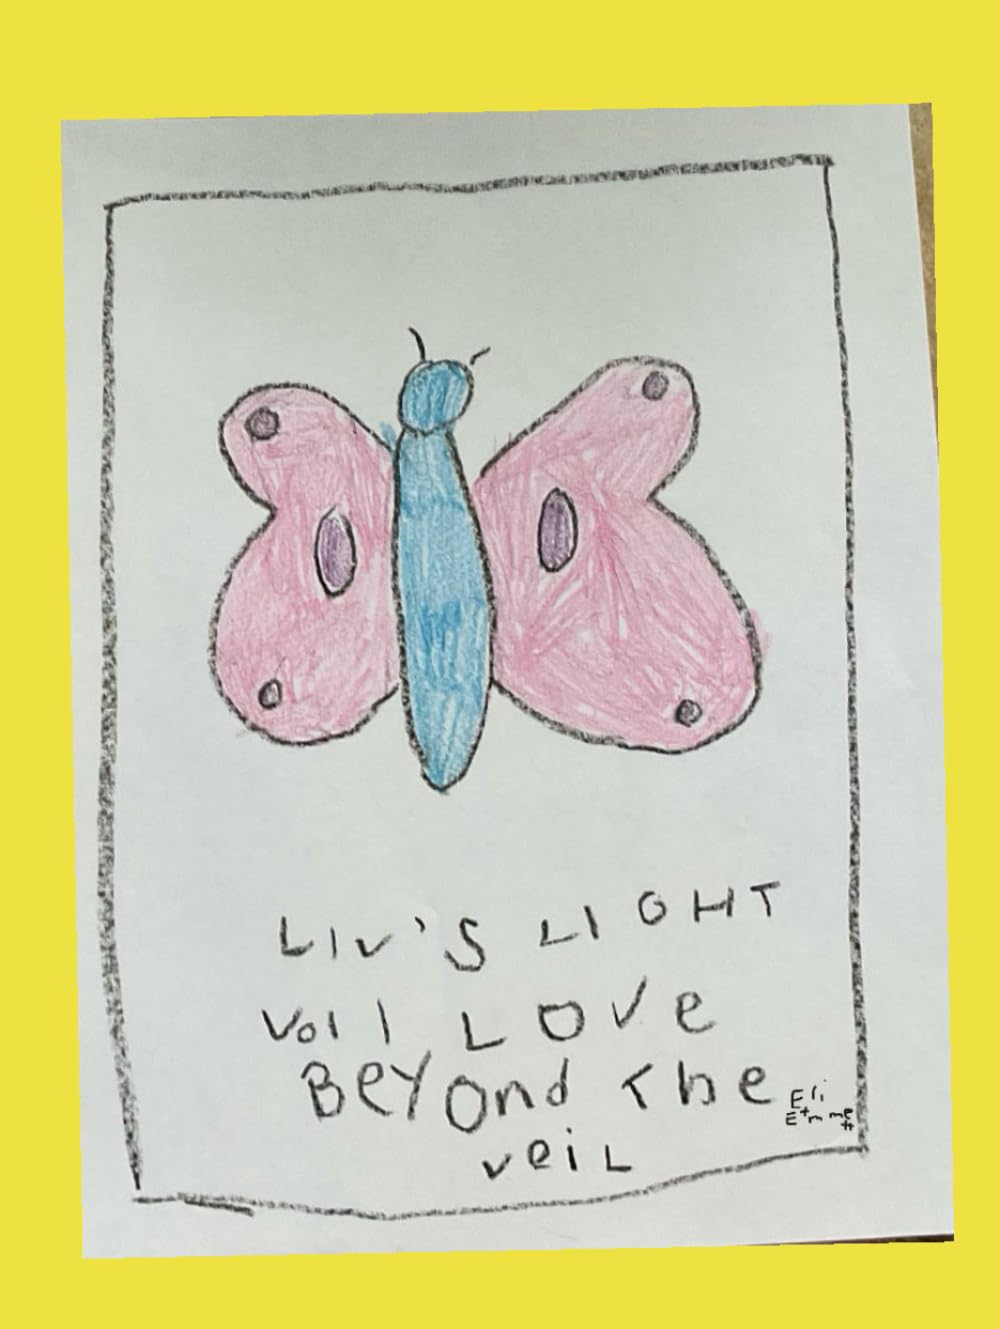 LIV'S LIGHT
Vol 1 LOVe
BeYOnd The
veiL
Eli